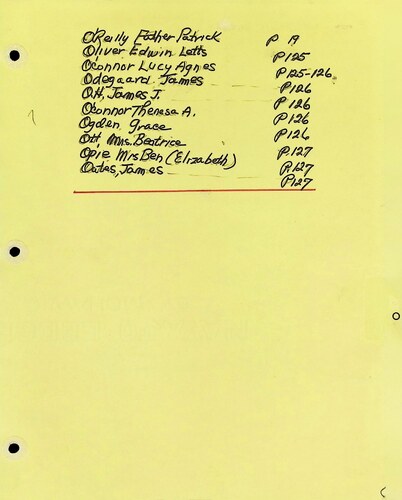 O'Reilly Father Patrick P A
Oliver Edwin Letts P125
O'Connor Lucy Agnes P125-126
Odegaard James P126
Ott, James J. P126
O'Connor Theresa A. P126
Ogden Grace P126
Ott, Mrs. Beatrice P.127
Opie Mrs Ben (Elizabeth) P.127
Oates, James P127